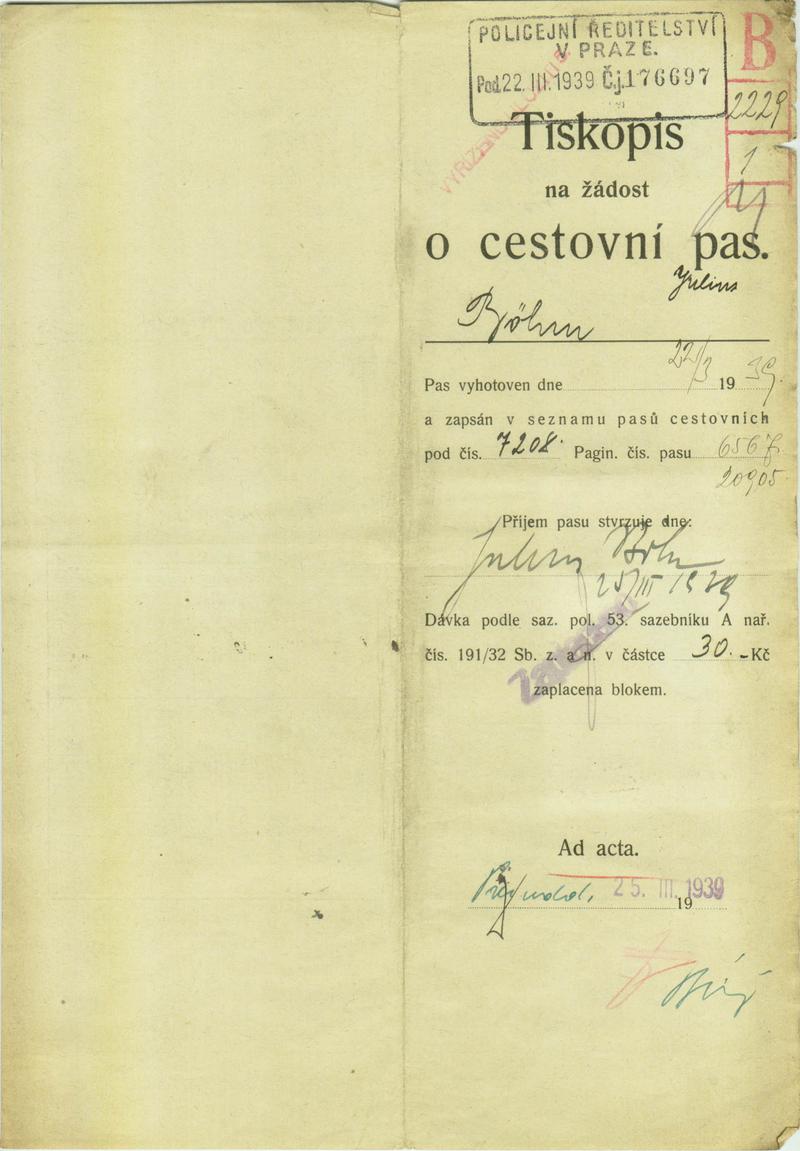 POLICEJNÍ ŘEDITELSTVÍ
V PRAZE.
Pod. 22. III. 1939 Č.j. 176697
B
2229
1
Tiskopis
na žádost
o cestovní pas.
Julius
Böhm
Pas vyhotoven dne 22/3 1939
a zapsán v seznamu pasů cestovních
pod čís. 7208. Pagin. čís. pasu 6567
20905
Příjem pasu stvrzuje dne:
Julius Böhm
25/III 1939
Dávka podle saz. pol. 53. sazebníku A nař.
čís. 191/32 Sb. z. a n. v částce 30.-Kč
zaplacena blokem.
Ad acta.
25. III. 1939
19